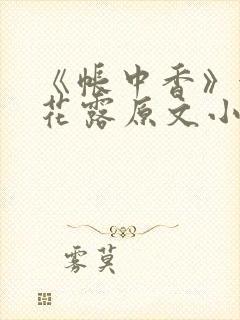 《帐中香》
花露原文小
雾莫